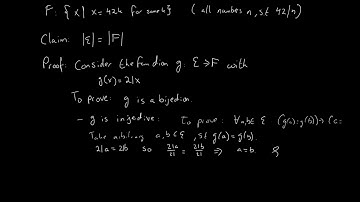 F: { x | x = 42k for some k} (all numbers n, s.t 42/n)
Claim: |E| = |F|
Proof: Consider the function g: E → F with
g(x) = 21x
To prove: g is a bijection.
- g is injective: To prove: ∀a,b∈ E (g(a)=g(b)) → (a=
Take arbitrary a,b ∈ E, st g(a) = g(b).
21a = 21b so 21a/21 = 21b/21 ⇒ a=b.